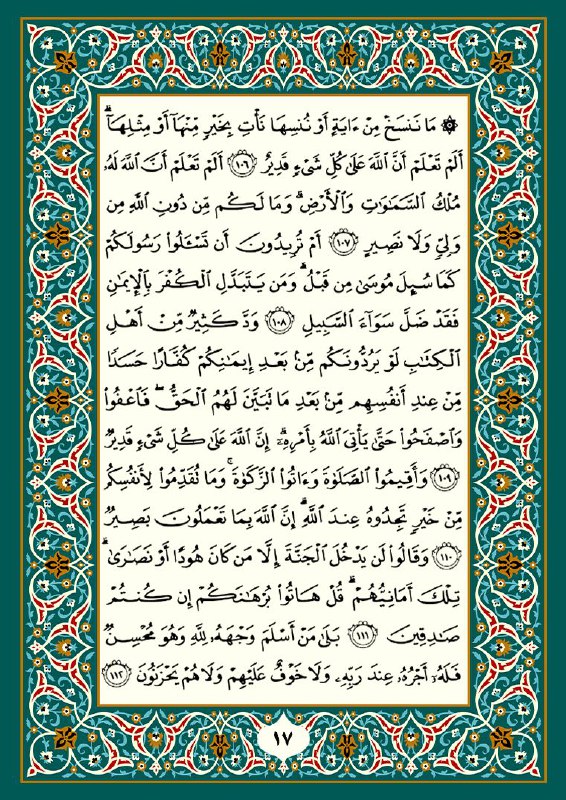 ۞ مَا نَنسَخْ مِنْ ءَايَةٍ أَوْ نُنسِهَا نَأْتِ بِخَيْرٍ مِّنْهَآ أَوْ مِثْلِهَآ ۗ
أَلَمْ تَعْلَمْ أَنَّ اللَّهَ عَلَىٰ كُلِّ شَىْءٍ قَدِيرٌ ١٠٦ أَلَمْ تَعْلَمْ أَنَّ اللَّهَ لَهُۥ
مُلْكُ السَّمَٰوَٰتِ وَالْأَرْضِ ۗ وَمَا لَكُم مِّن دُونِ اللَّهِ مِن
وَلِىٍّ وَلَا نَصِيرٍ ١٠٧ أَمْ تُرِيدُونَ أَن تَسْـَٔلُوا۟ رَسُولَكُمْ
كَمَا سُئِلَ مُوسَىٰ مِن قَبْلُ ۗ وَمَن يَتَبَدَّلِ الْكُفْرَ بِالْإِيمَٰنِ
فَقَدْ ضَلَّ سَوَآءَ السَّبِيلِ ١٠٨ وَدَّ كَثِيرٌ مِّنْ أَهْلِ
الْكِتَٰبِ لَوْ يَرُدُّونَكُم مِّنۢ بَعْدِ إِيمَٰنِكُمْ كُفَّارًا حَسَدًا
مِّنْ عِندِ أَنفُسِهِم مِّنۢ بَعْدِ مَا تَبَيَّنَ لَهُمُ الْحَقُّ ۖ فَاعْفُوا۟
وَاصْفَحُوا۟ حَتَّىٰ يَأْتِىَ اللَّهُ بِأَمْرِهِۦٓ ۗ إِنَّ اللَّهَ عَلَىٰ كُلِّ شَىْءٍ قَدِيرٌ
١٠٩ وَأَقِيمُوا۟ الصَّلَوٰةَ وَءَاتُوا۟ الزَّكَوٰةَ ۚ وَمَا تُقَدِّمُوا۟ لِأَنفُسِكُم
مِّنْ خَيْرٍ تَجِدُوهُ عِندَ اللَّهِ ۗ إِنَّ اللَّهَ بِمَا تَعْمَلُونَ بَصِيرٌ
١١٠ وَقَالُوا۟ لَن يَدْخُلَ الْجَنَّةَ إِلَّا مَن كَانَ هُودًا أَوْ نَصَٰرَىٰ ۗ
تِلْكَ أَمَانِيُّهُمْ ۗ قُلْ هَاتُوا۟ بُرْهَٰنَكُمْ إِن كُنتُمْ
صَٰدِقِينَ ١١١ بَلَىٰ مَنْ أَسْلَمَ وَجْهَهُۥ لِلَّهِ وَهُوَ مُحْسِنٌ
فَلَهُۥٓ أَجْرُهُۥ عِندَ رَبِّهِۦ وَلَا خَوْفٌ عَلَيْهِمْ وَلَا هُمْ يَحْزَنُونَ ١١٢
١٧